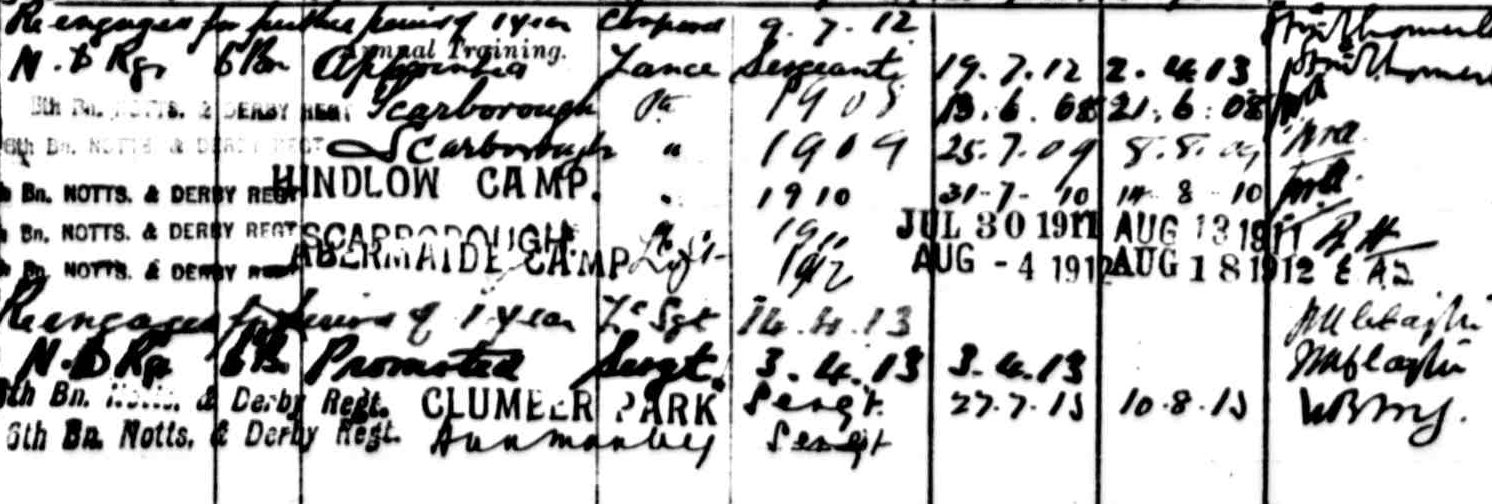 Re engaged for further period of 1 year Corporal 9.7.12
Annual Training.
N. D Rgt 6 Bn Appointed Lance Sergeant 19.7.12 2.4.13
6th Bn. NOTTS. & DERBY REGT Scarborough Pte 1908 13.6.08 21.6.08
6th Bn. NOTTS & DERBY REGT Scarborough " 1909 25.7.09 8.8.09
Bn. NOTTS. & DERBY REGT HINDLOW CAMP. " 1910 31-7-10 14 8 10
Bn. NOTTS. & DERBY REGT SCARBOROUGH 1911 JUL 30 1911 AUG 13 1911
Bn. NOTTS. & DERBY REGT ABERMAIDE CAMP L/Sgt 1912 AUG -4 1912 AUG 18 1912
Re engaged for period of 1 year Lc Sgt 14.4.13
N. D Rgt 6 Bn Promoted Sergt. 3.4.13 3.4.13
6th Bn. Notts. & Derby Regt. CLUMBER PARK Sergt. 27.7.13 10.8.13
6th Bn. Notts. & Derby Regt. Hunmanby Sergt